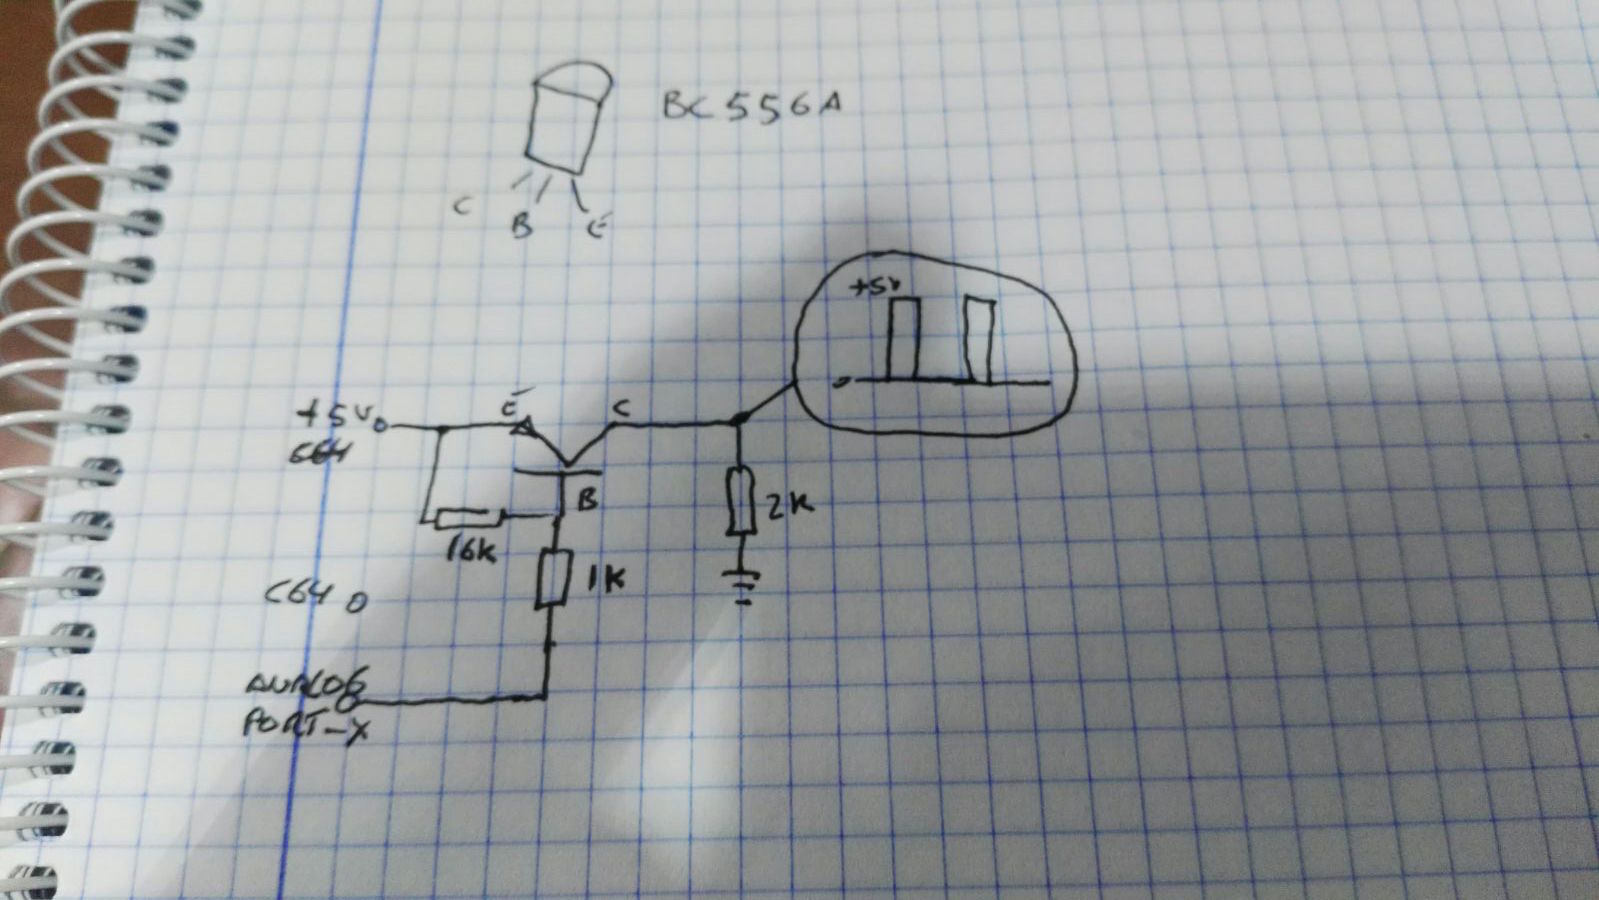 BC556A
C
B
E
+5V
0
+5V
C64
E
C
B
16K
2K
1K
C64
ANALOG
PORT-X